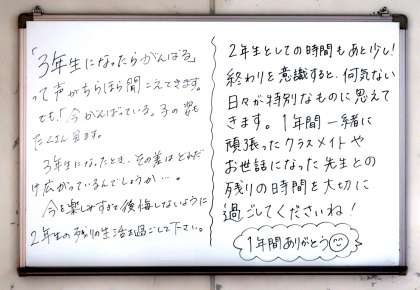 「3年生になったらがんばる」
って声がちらほら聞こえてきます。
でも!「今がんばっている。子の姿も
たくさん見ます。
3年生になったとき、その差はどれだ
け広がっているんでしょうか…。
今を楽しみすぎて後悔しないように
2年生の残りの生活を過ごして下さい。
2年生としての時間もあと少し!
終わりを意識すると、何気ない
日々が特別なものに思えて
きます。1年間一緒に
頑張ったクラスメイトや
お世話になった先生との
残りの時間を大切に
過ごしてくださいね!
1年間ありがとう